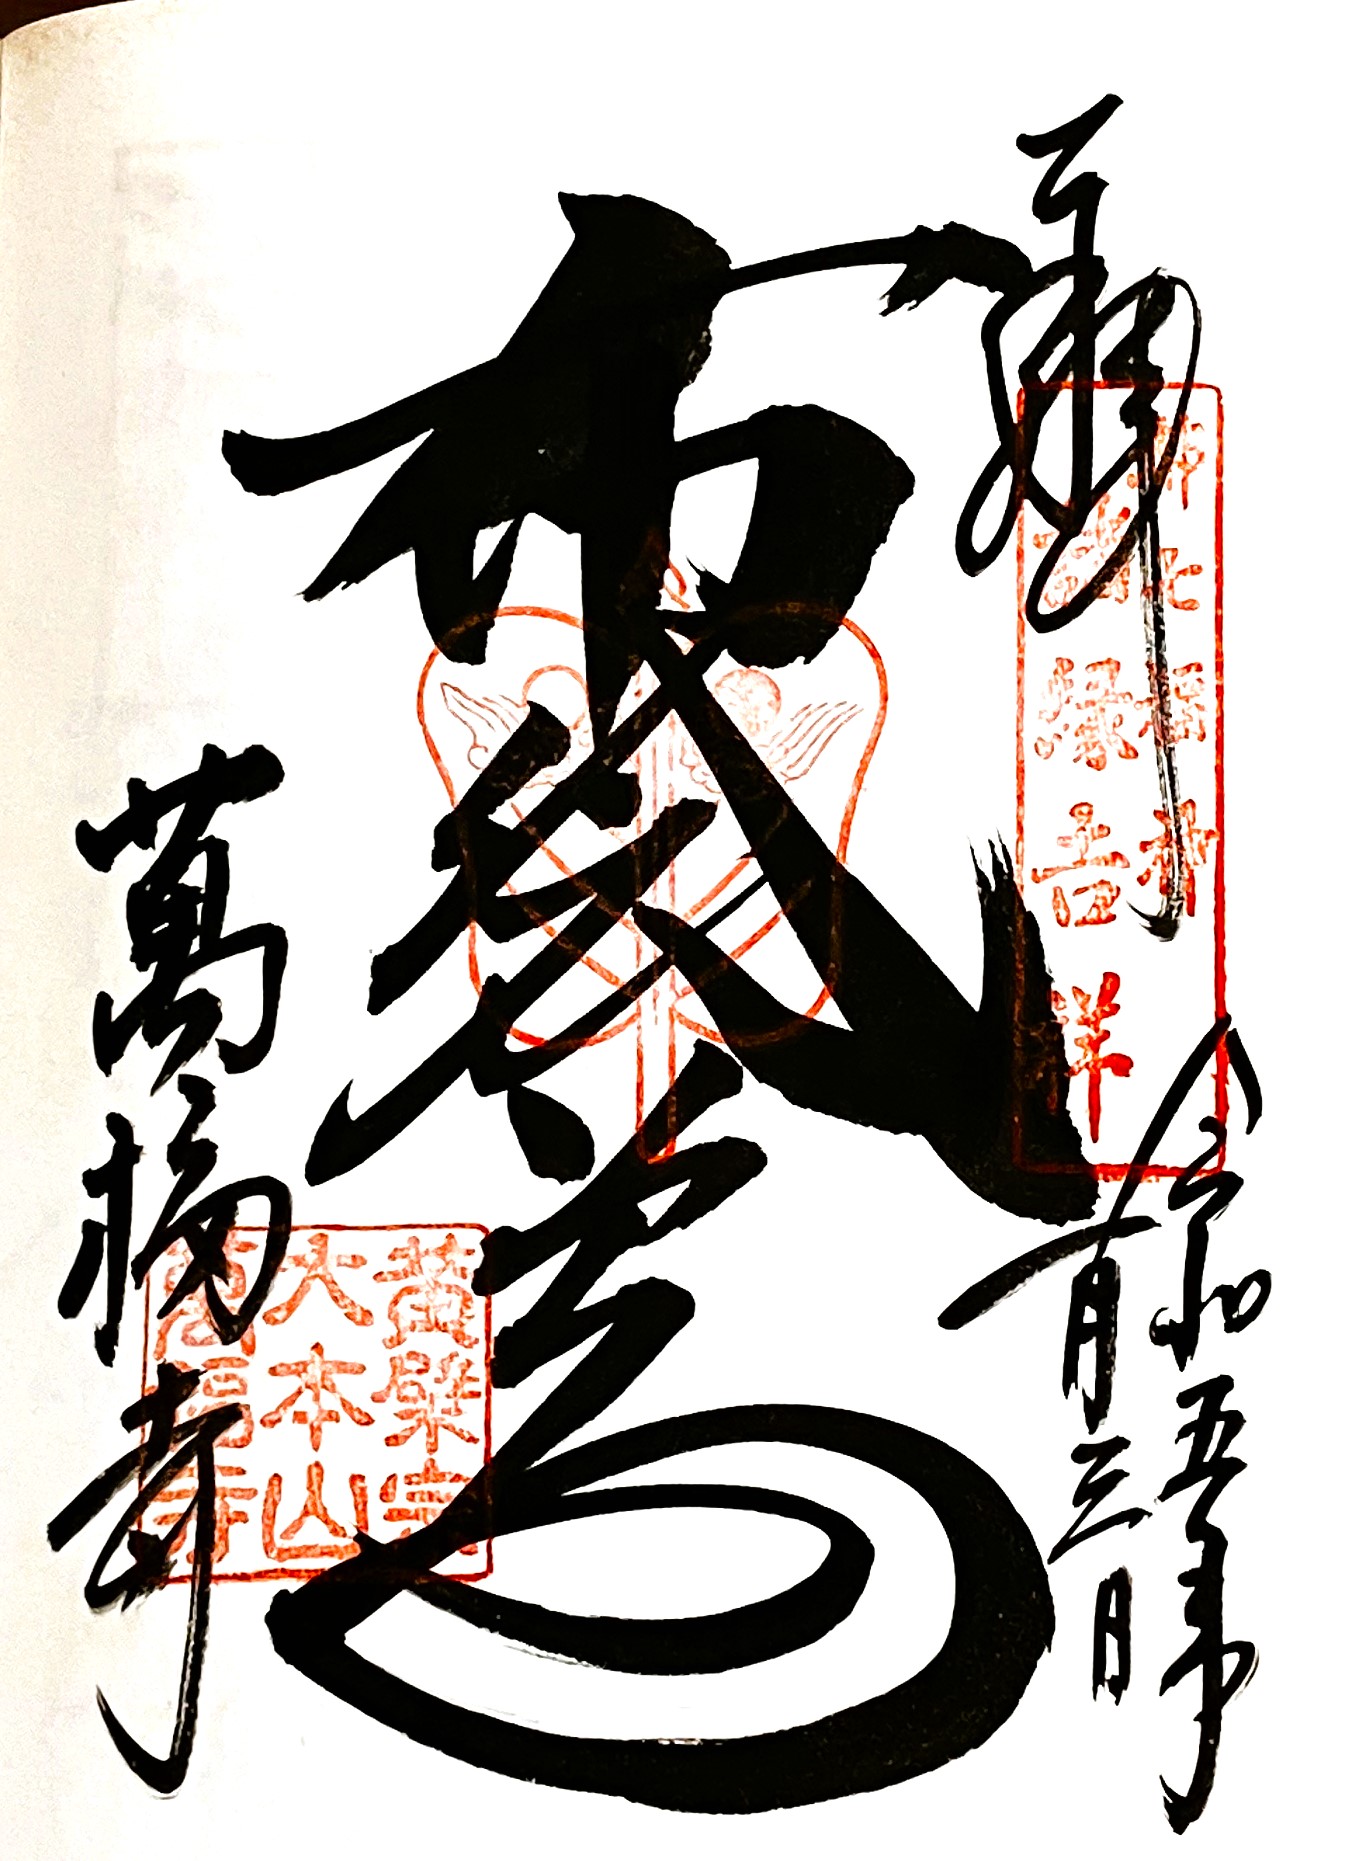 奉拝
都七福神
福縁吉祥
令和五年
一月三日
布袋尊
黄檗宗
大本山
萬福寺
萬福寺